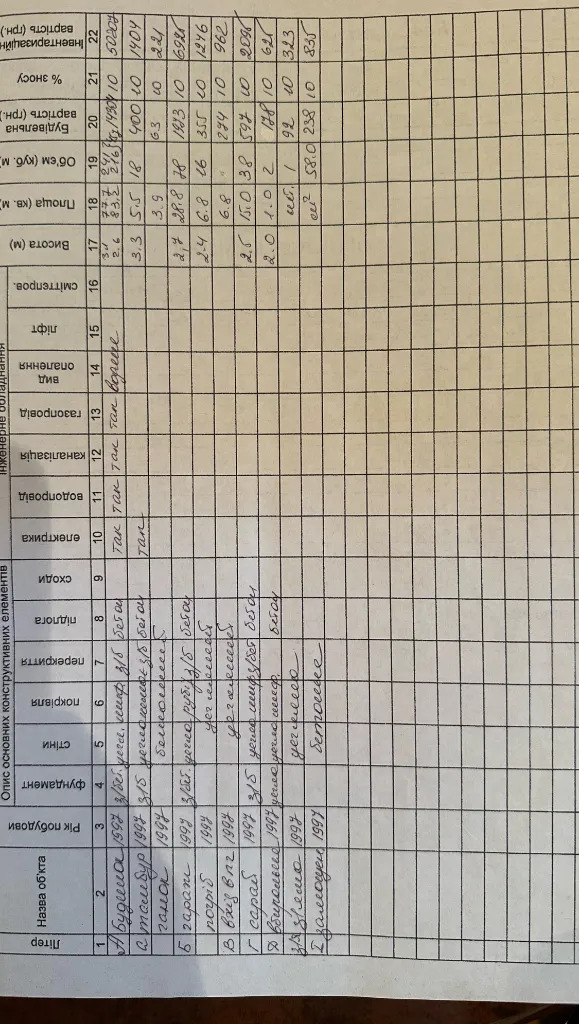 Опис основних конструктивних елементів
Інженерне обладнання
Літер
Назва об'єкта
Рік побудови
фундамент
стіни
покрівля
перекриття
підлога
сходи
електрика
водопровід
каналізація
газопровід
вид опалення
ліфт
сміттєпров.
Висота (м)
Площа (кв. м)
Об'єм (куб. м)
Будівельна вартість (грн.)
% зносу
Інвентаризаційна вартість (грн.)
1 2 3 4 5 6 7 8 9 10 11 12 13 14 15 16 17 18 19 20 21 22
А будинок 1997 з/бет. цегл. шиф. з/б бетон так так так так 2.6 77.7 83.2 10
тамбур 1997 з/б цегла з/б бетон так 3.3 5.5 18 400 10 1404
ганок 1997 3.9 63 10 221
Б гараж 1997 з/бет. цегла з/б бетон 2,7 28.8 78 10
погріб 1997 цегляний 2.4 6.8 16 355 10 1246
В вхід в пг 1997 цегляний 6.8 274 10 962
Г сарай 1997 з/б цегла шиф з/бет бетон 2.5 15.0 38 597 10
Д вбиральня 1997 цегла цегла шиф. бетон 2.0 1.0 2 178 10 625
1997 1 92 10 323
I 1997 58.0 238 10 835